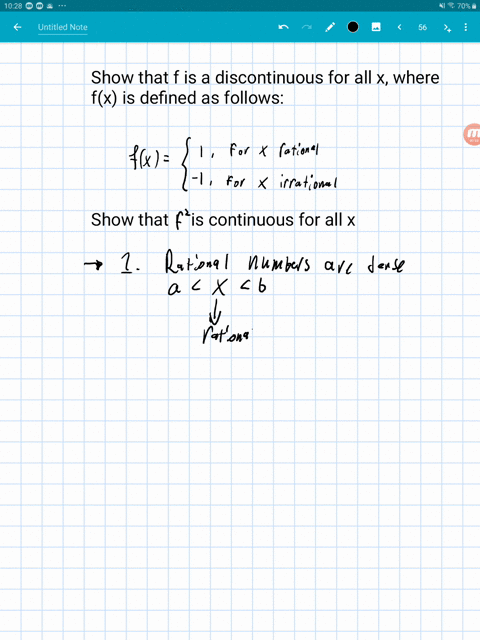 10:28
70%
Untitled Note
56
Show that f is a discontinuous for all x, where
f(x) is defined as follows:
f(x) = { 1, for x rational
-1, for x irrational
Show that f² is continuous for all x
→ 1. Rational numbers are dense
a < x < b
↓
rationa